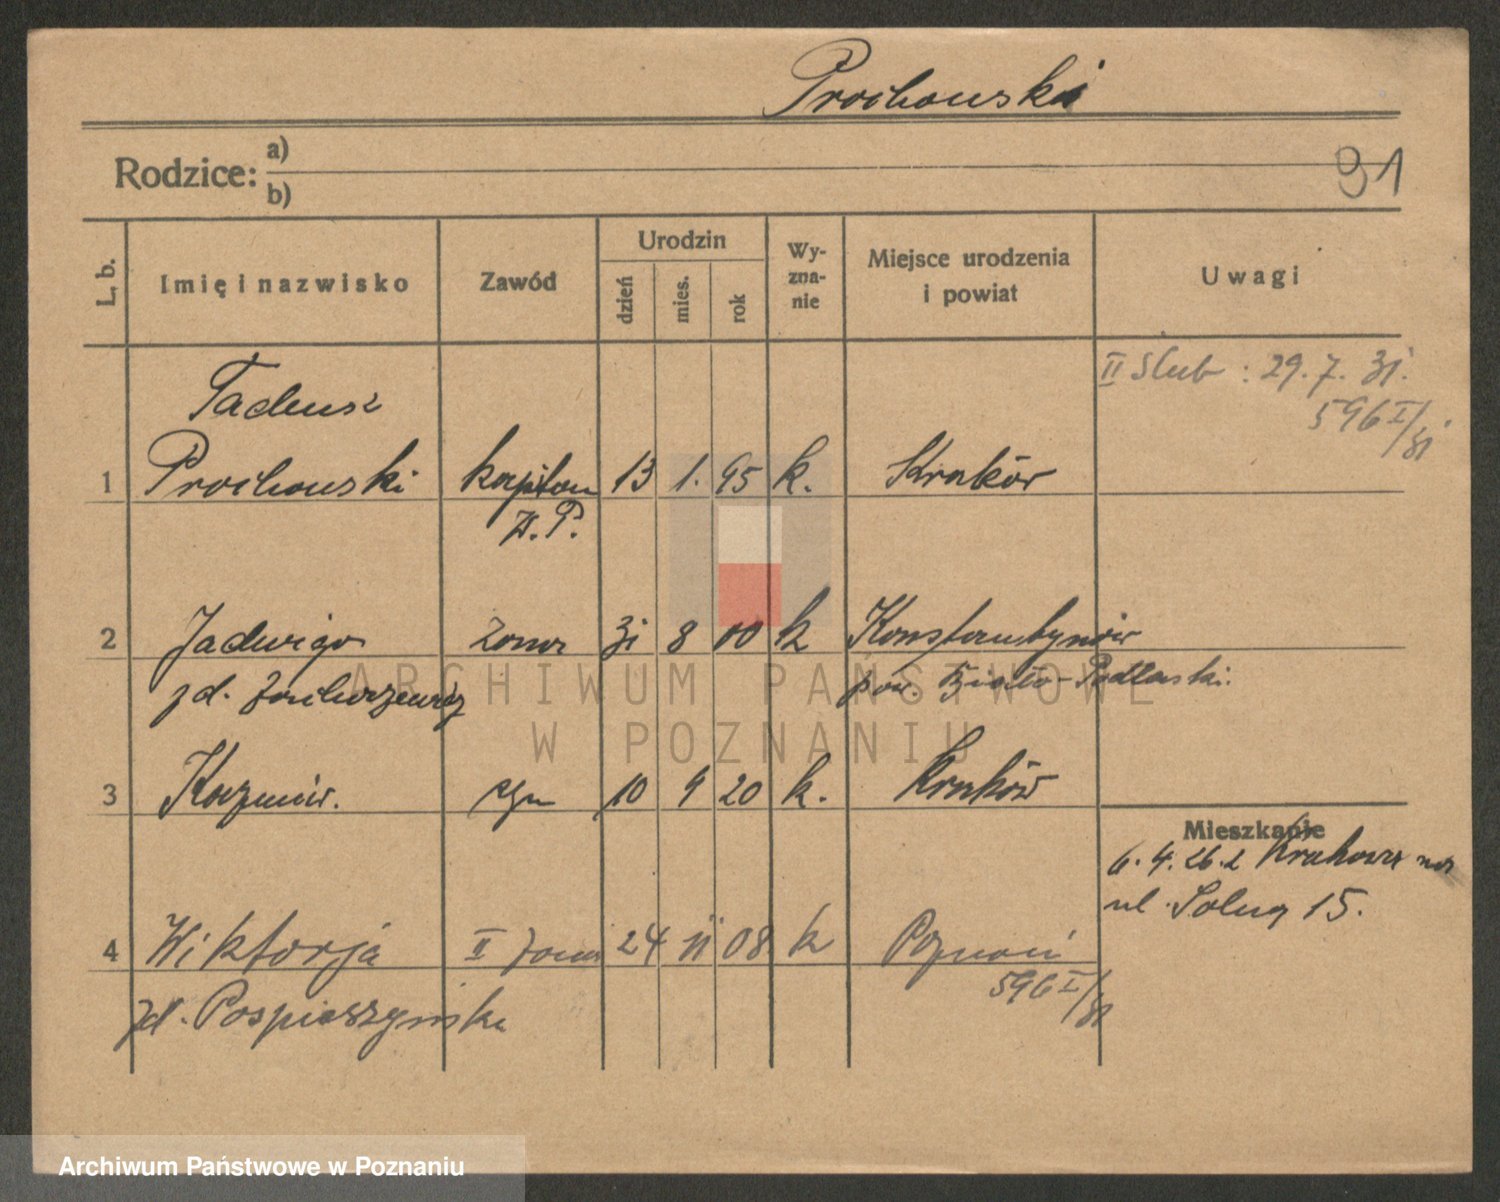 Prochowski
Rodzice: a)
b)
91
L. b.
Imię i nazwisko
Zawód
Urodzin
dzień
mies.
rok
Wy-
zna-
nie
Miejsce urodzenia
i powiat
Uwagi
II Ślub: 29. 7. 31.
596 I/31
Tadeusz
1 Prochowski kapitan 13 1. 95 k. Kraków
W. P.
2 Jadwiga żona 31 8 00 k Konstantynów
zd. pow. Biało-Podlaski.
3 Kazimir. syn 10 9 20 k. Kraków
Mieszkanie
6. 4. 26. z Krakowa na
ul. Solną 15.
4 Wiktorja II żona 24 11 08 k Poznań
596 I/31
zd. Pospieszyńska
ARCHIWUM PAŃSTWOWE
W POZNANIU
Archiwum Państwowe w Poznaniu